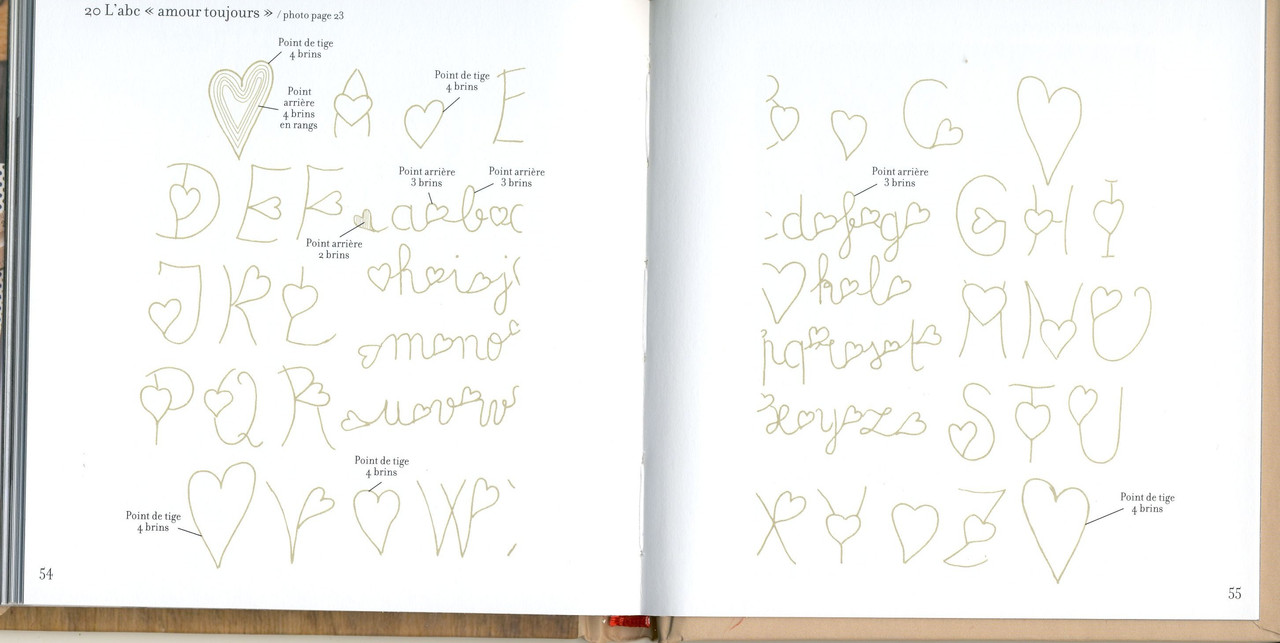 20 L'abc « amour toujours » / photo page 23
Point de tige
4 brins
Point
arrière
4 brins
en rangs
Point de tige
4 brins
A
E
C
Point arrière
3 brins
Point arrière
3 brins
Point arrière
3 brins
D E F
a b c
d f g
G H I
Point arrière
2 brins
J K L
h i j
k l
M N O
m n o
p q r s t
P Q R
u v w
x y z
S T U
Point de tige
4 brins
V W
X Y Z
Point de tige
4 brins
Point de tige
4 brins
54
55